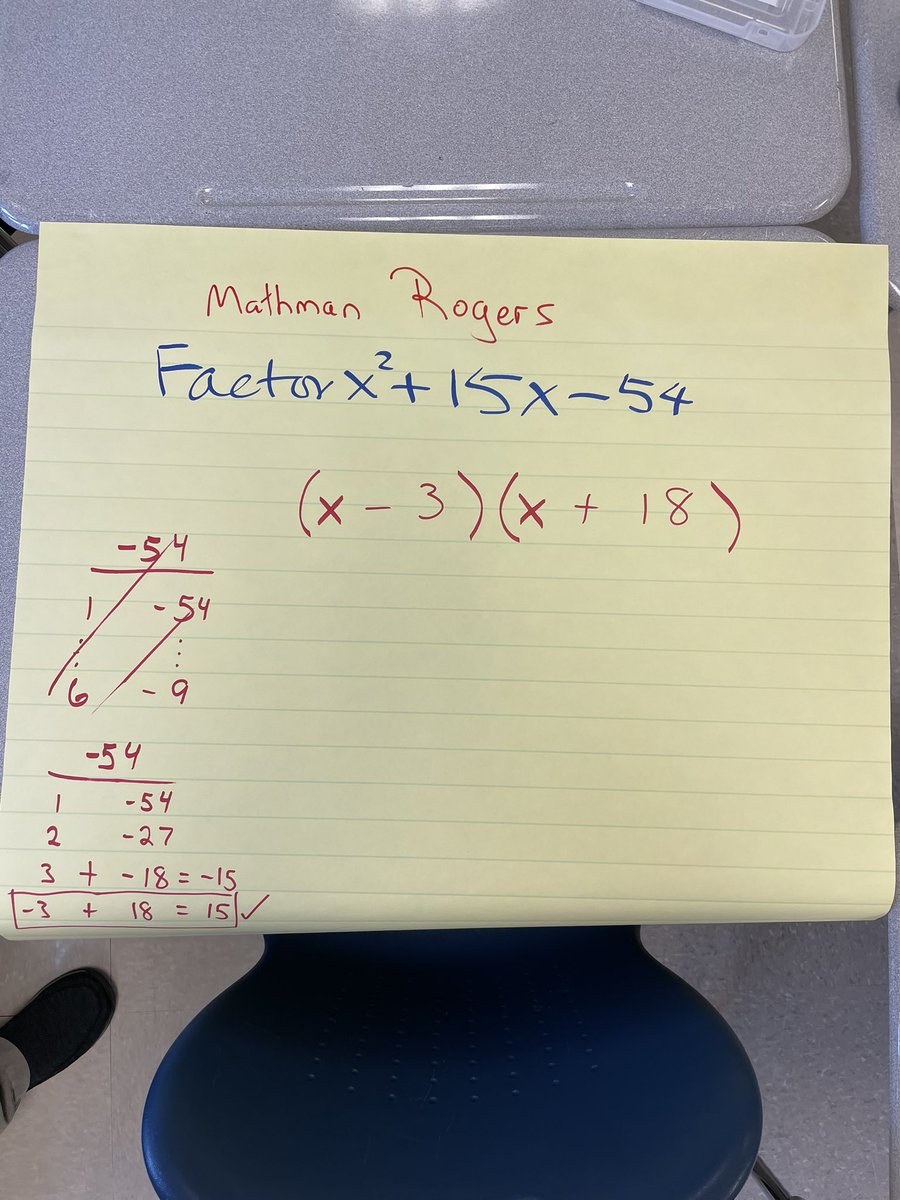 Mathman Rogers
Factor x² + 15x - 54
(x - 3)(x + 18)
-54
1 -54
⋮ ⋮
6 -9
-54
1 -54
2 -27
3 + -18 = -15
-3 + 18 = 15 ✓